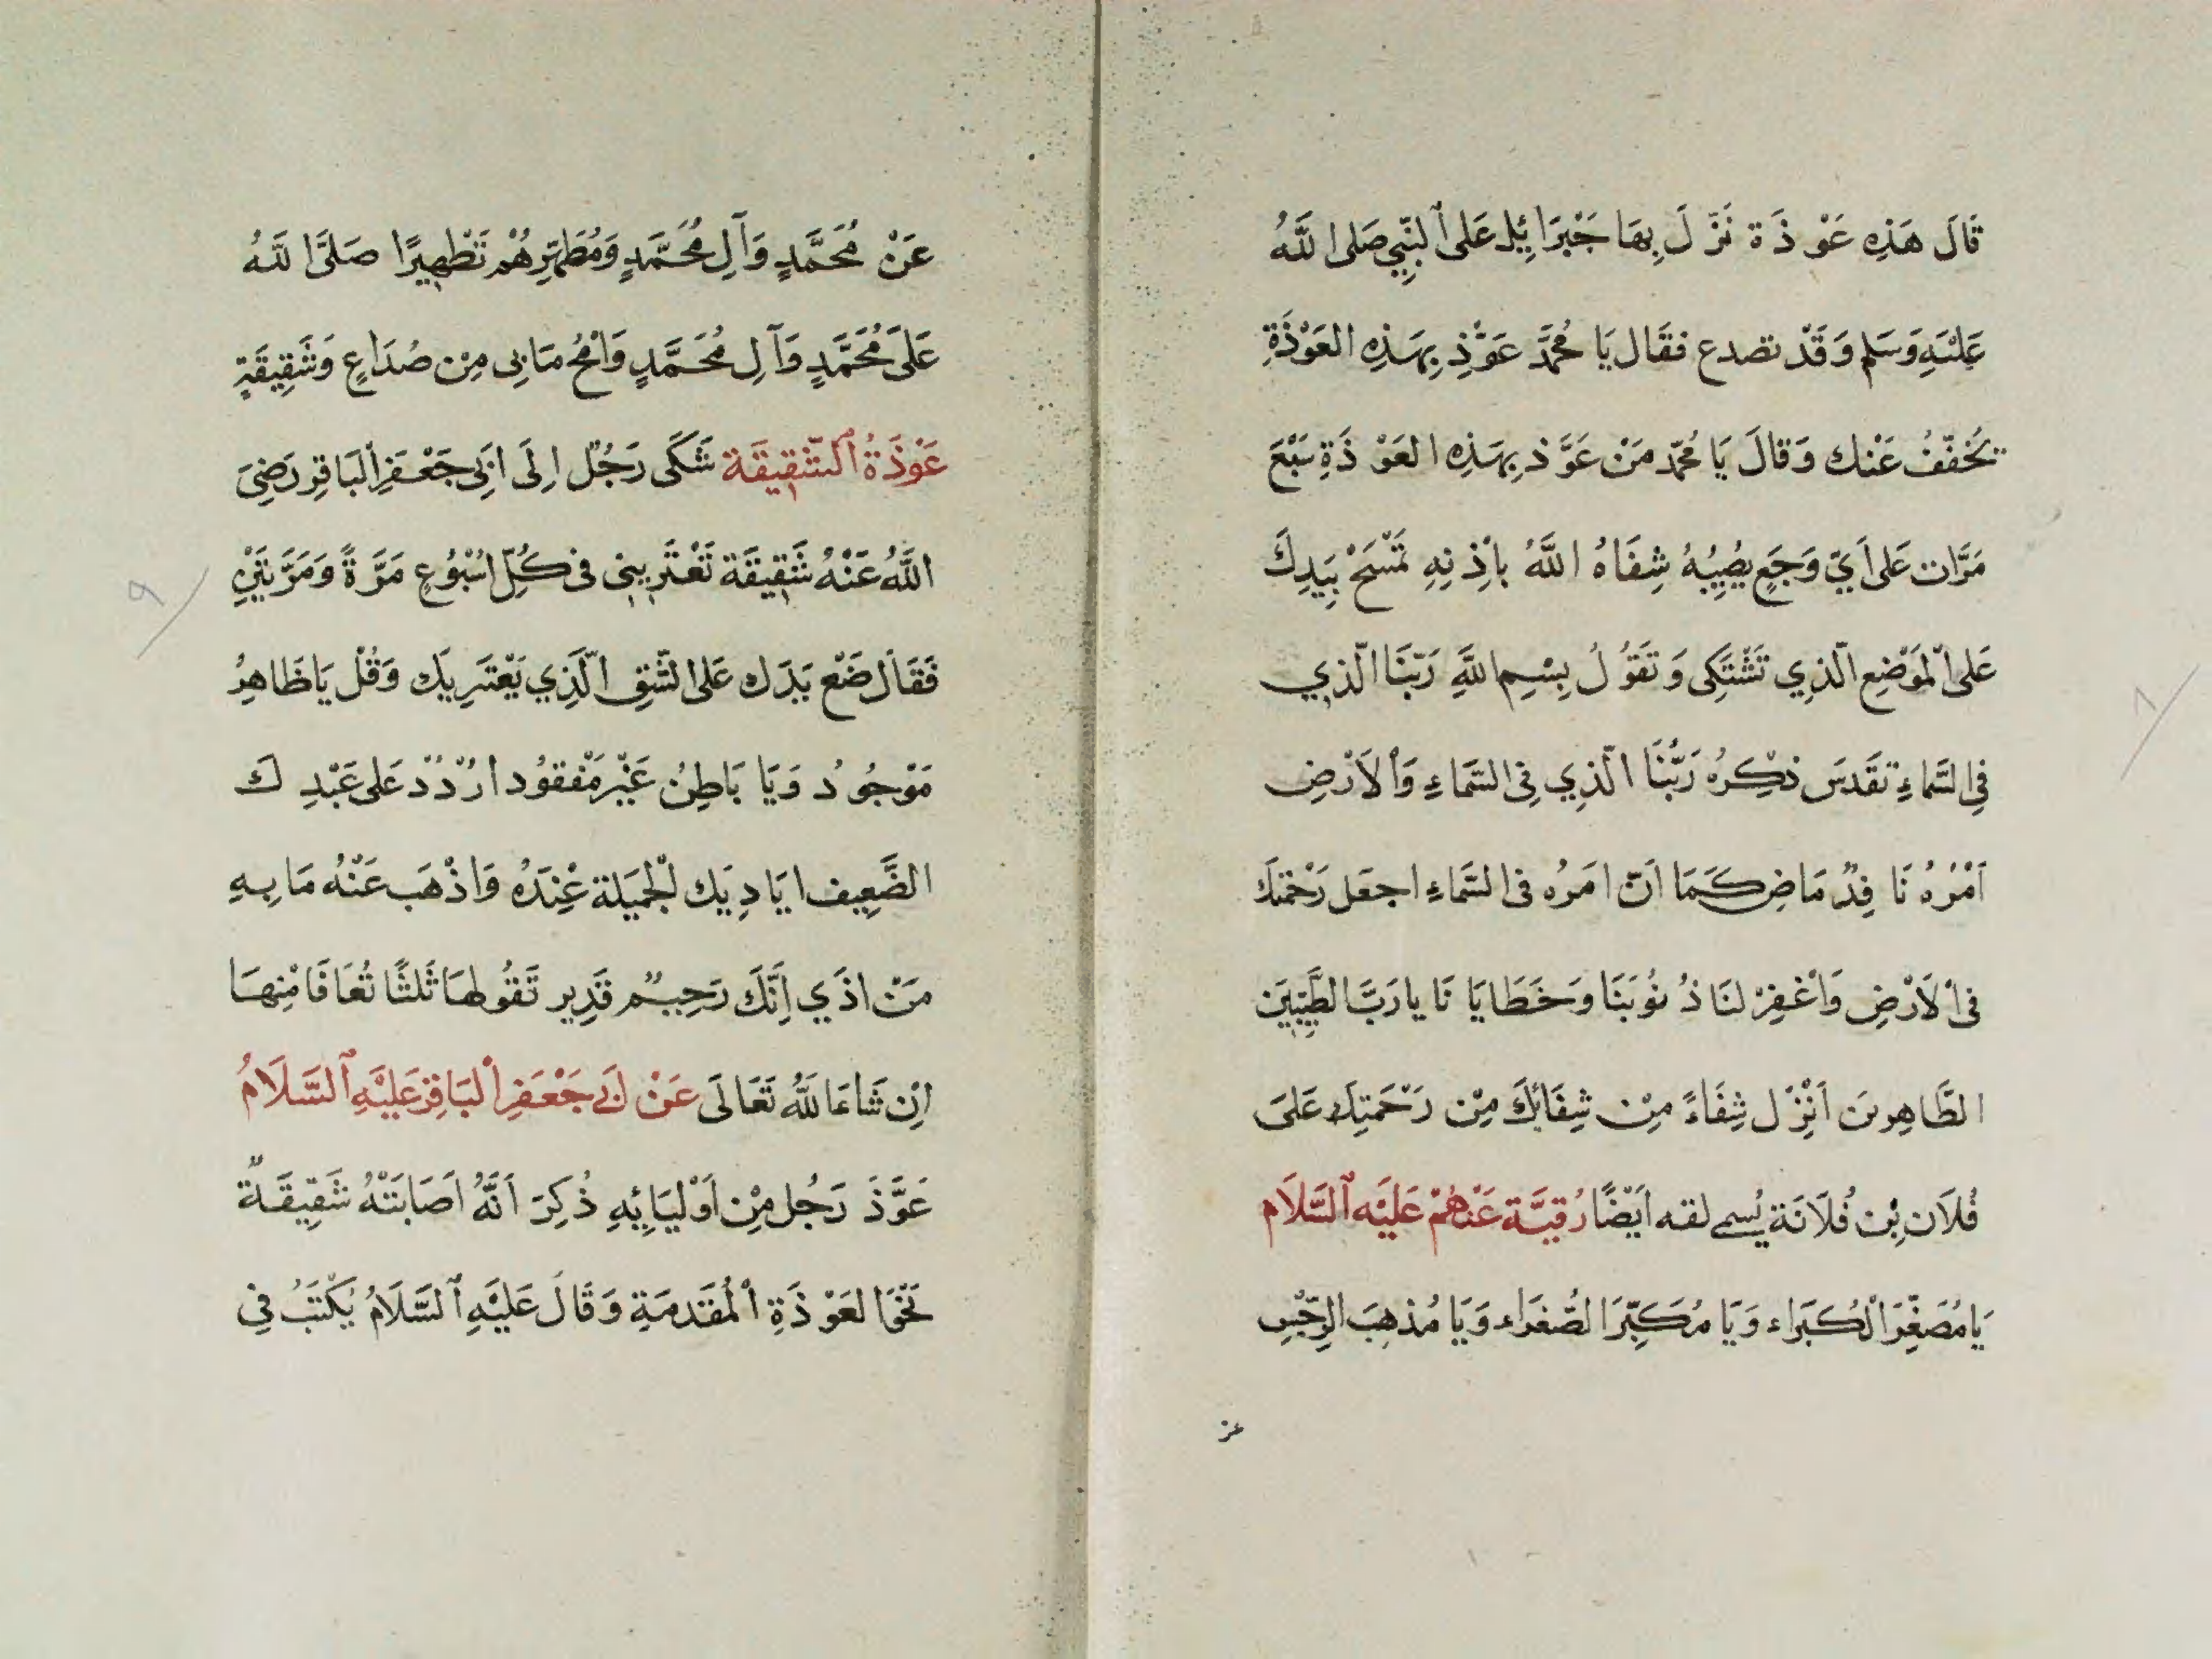 قَالَ هَذِهِ عَوْذَة نَزَّلَ بِهَا جَبْرَائِيل عَلَى ٱلنَّبِيِّ صَلى اللَّهُ
عَلَيْهِ وَسَلم وَقَدْ تصدع فقَال يَا مُحَمَّد عَوِّذ بِهَذِهِ العَوْذَةِ
يُخَفّفُ عَنْك وَقالَ يَا مُحمّد مَنْ عَوَّذ بِهَذِهِ العَوْذَةِ سَبْعَ
مَرَّات عَلى اَيِّ وَجَعٍ يُصِيبُهُ شِفَاهُ اللَّهُ بِاْذِنِهِ تَمْسَحْ بِيَدِكَ
عَلى اْلمَوْضِعِ الّذِي تَشْتَكِى وَتَقُولُ بِسْمِ اللَّهِ رَبّنَا الّذِي
فِي السَّمَاءِ تَقَدسَ ذِكْرُهُ رَبُّنَا الّذِي فِي السَّمَاءِ وَاْلاَرْضِ
اَمْرُهُ نَافِذٌ مَاضِ كَمَا اَنّ امَرُه فى السَّمَاءِ اجعَل رَحْمَتَكَ
فىِ اْلاَرْضِ وَاْغْفِرْ لنَا ذُنوُبَنَا وَخَطَايَانَا يا رَبَّ الطَّيِّبِيَن
الطَّاهِرينَ اَنْزِل شِفَاءً مِنْ شِفَائِكَ مِنْ رَحْمَتِكَ عَلىَ
فُلاَن بْن فُلاَنَة يُسمى لقه اَيْضًا رُقيَّة عَنْهُمْ عَلَيْه ٱلسَّلَام
يَا مُصَغِّرَ اْلكُبَراء وَيَا مُكَبِّرَ الصُّغَراء وَيَا مُذهِبَ الرِّجْسِ
عن
عَنْ مُحَمَّدٍ وَآلِ مُحَمَّدٍ وَمُطَهِّرِهُمْ تَطْهِيرًا صَلَّى اللَّهُ
عَلىَ مُحَمَّدٍ وَآلِ مُحَمَّدٍ وَاْمْحُ مَا بِى مِنْ صُدَاعٍ وَشَقِيقَةٍ
عَوْذَةُ ٱلشَّقِيقَة شَكَى رَجُلٌ اِلَى اَبِى جَعْفَرِ اْلبَاقِر رَضِىَ
اللَّهُ عَنْهُ شَقِيقَة تَعْتَرِينِى فى كُلِّ اُسْبُوُعٍ مَرَّةً وَمَرَّتَيْنِ
فَقَال ضَعْ يَدَك عَلى الشِّقِ الَّذِي يَعْتَرِيك وَقُلْ يَا ظَاهِرُ
مَوْجُودُ وَيَا بَاطِنُ غَيْر مَفْقوُد ارْدُدْ عَلى عَبْدِكَ
الضَّعِيف اَيَادِيَك اْلجَمِيلَة عْنِدَهُ وَاذْهَب عَنْهُ مَا بِهِ
مَنْ اذَي اِنَّكَ رَحِيمٌ قَدِير تَقُولهَا ثَلثًا تُعَافَا مْنِهَا
اِنْ شَاءَ اللَّهُ تَعَالَى عَنْ اَبِى جَعْفَرِ اْلبَاقِرْ عَلَيْهِ ٱلسَّلَامُ
عَوَّذَ رَجُل مِنْ اَوْلِيَائِهِ ذُكِرَ اَنَّهُ اَصَابَتْهُ شَقِيقَةٌ
نَحْوَ العَوْذَةِ اْلمُقَدمَةِ وَقَالَ عَلَيْهِ ٱلسَّلَامُ يَكْتبُ فِى